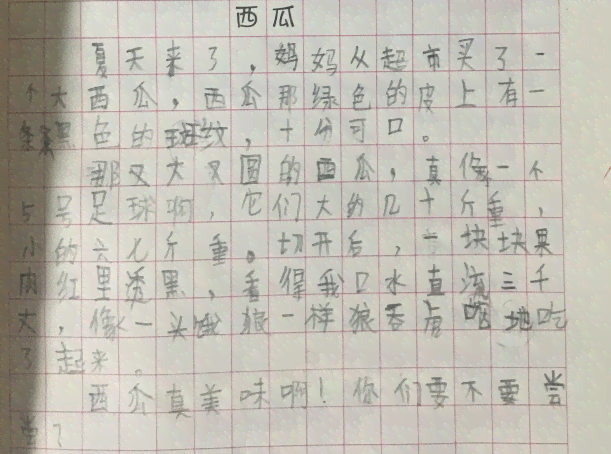 西瓜
夏天来了，妈妈从超市买了一
个大西瓜，西瓜那绿色的皮上有一
条条黑色的斑纹，十份可口。
那又大又圆的西瓜，真像一个
5号足球啊，它们大的几十斤重，
小的六七斤重。切开后，一块块果
肉红里透黑，看得我口水直流三千
丈，像一头饿狼一样狼吞虎咽地吃
了起来。
西瓜真美味啊！你们要不要尝
尝？